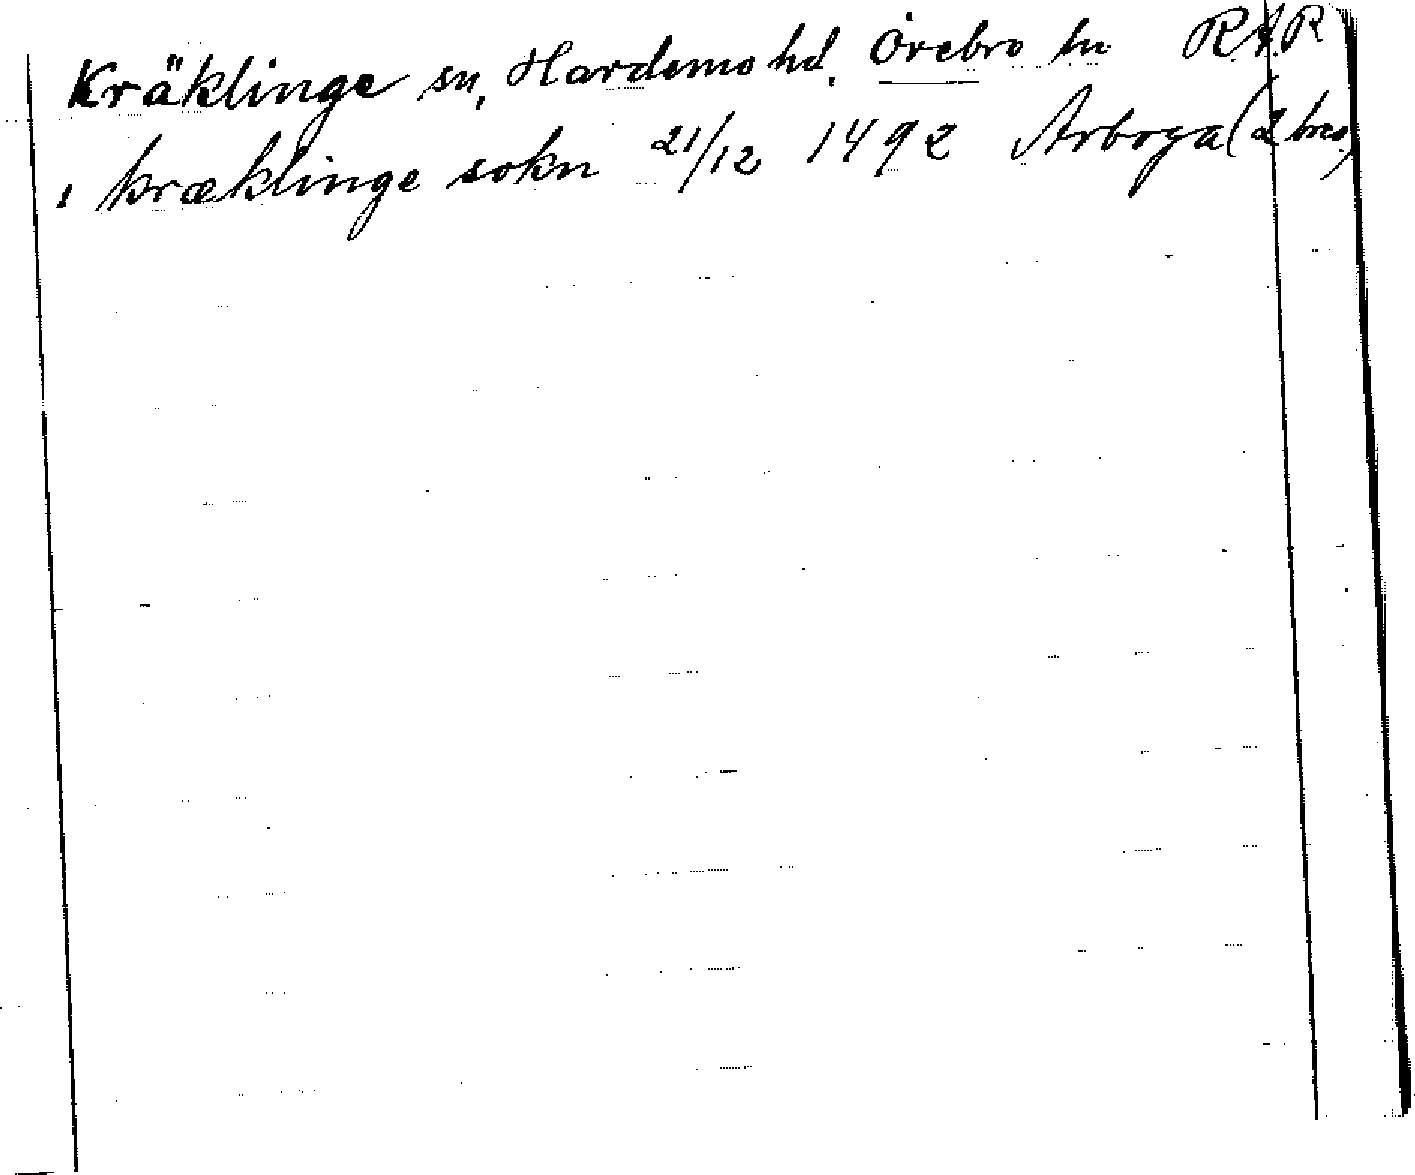 Kräklinge sn, Hardemo hd. Örebro ln RAR
i kræklinge sokn 21/12 1492 Arboga (2 brev)